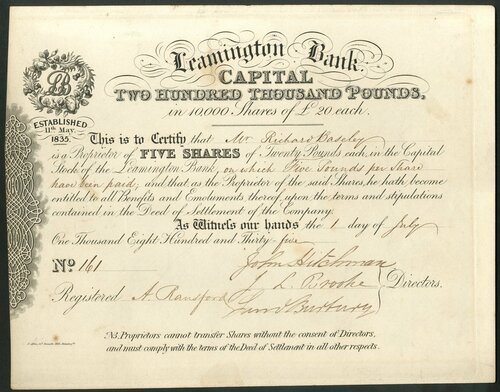 Leamington Bank.
CAPITAL
TWO HUNDRED THOUSAND POUNDS,
in 10,000 Shares of £20 each.
LB
ESTABLISHED
11th May
1835.
This is to Certify that Mr Richard Baseley
is a Proprietor of FIVE SHARES of Twenty Pounds each, in the Capital
Stock of the Leamington Bank, on which Five Pounds per Share
have been paid, and that as the Proprietor of the said Shares, he hath become
entitled to all Benefits and Emoluments thereof, upon the terms and stipulations
contained in the Deed of Settlement of the Company.
As Witness our hands the 1 day of July
One Thousand Eight Hundred and Thirty-five
No 161
John Hitchman
L. Brooke
Directors.
Registered A. Ransford
Burbury
NB. Proprietors cannot transfer Shares without the consent of Directors,
and must comply with the terms of the Deed of Settlement in all other respects.